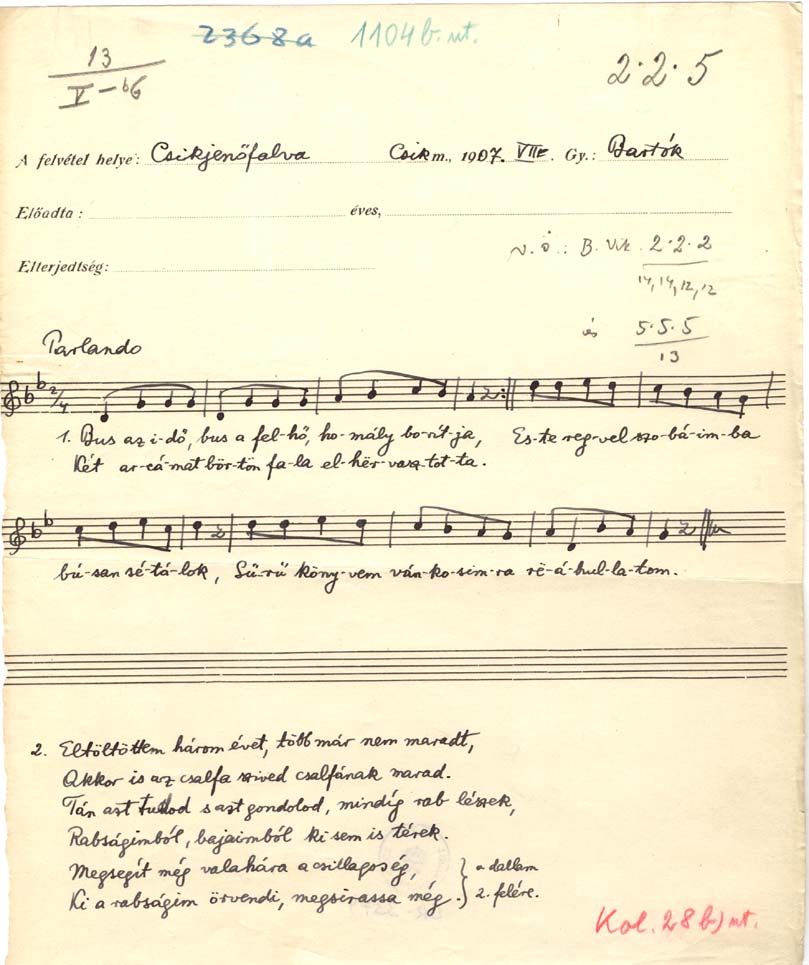 2368a 1104 b. nt.
13
V-b6
2·2·5
A felvétel helye: Csikjenőfalva Csik m., 1907. VIII. Gy.: Bartók
Előadta: éves,
Elterjedtség:
v. ö.: B. Vik. 2·2·2
14, 14, 12, 12
és 5·5·5
13
Parlando
2/4
1. Bus az i-dő, bus a fel-hő, ho-mály bo-rít-ja, Es-te reg-vel szo-bá-im-ba
Két ar-cá-mat bör-tön fa-la el-hër-vasz-tot-ta.
bú-san sé-tá-lok, Sű-rű köny-vem ván-ko-sim-ra rë-á-hul-la-tom.
2. Eltöltöttem három évet, több már nem maradt,
Akkor is az csalfa szived csalfának marad.
Tán azt tudod s azt gondolod, mindíg rab lészek,
Rabságimból, bajaimból ki sem is térek.
Megsegít még valahára a csillagos ég, } a dallam
Ki a rabságim örvendi, megsirassa még. } 2. felére.
Kol. 28 b) nt.